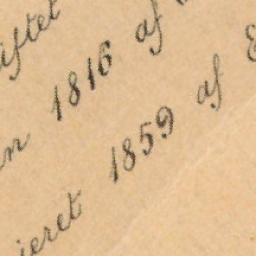 iftet
n 1816 af
ieret 1859 af E